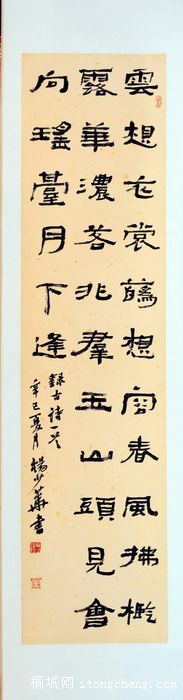 雲想衣裳蘤想容春風拂檻
露華濃若非羣玉山頭見會
向瑤臺月下逢
錄古詩一首
辛巳夏月楊少華書
桐城网 itongcheng.com